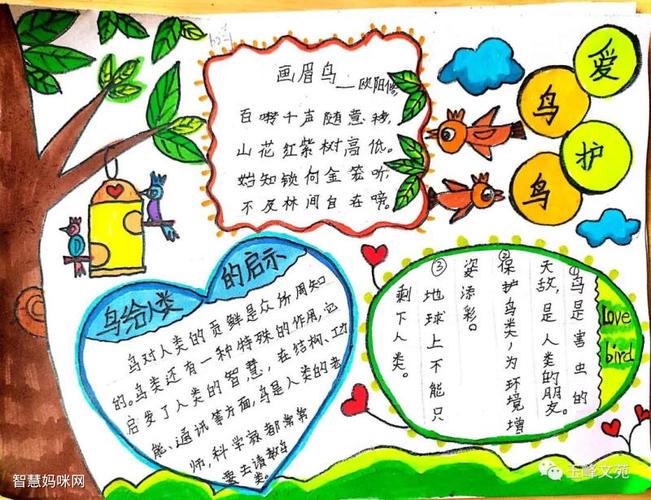 画眉鸟
—欧阳修
百啭千声随意移,
山花红紫树高低。
始知锁何金笼听,
不及林间自在啼。
爱
鸟
护
鸟
鸟给人类的启示
鸟对人类的贡鲜是众所周知
的。鸟类还有一种特殊的作用,它
启发了人类的智慧,在结构、功
能、通讯等方面,鸟是人类的老
师,科学家都常常
要去请教鸟
类。
①鸟是害虫的
天敌,是人类的朋友。
②保护鸟类,为环境增
姿添彩。
③地球上不能只
剩下人类。
Love
bird
智慧妈咪网
玉峰文苑